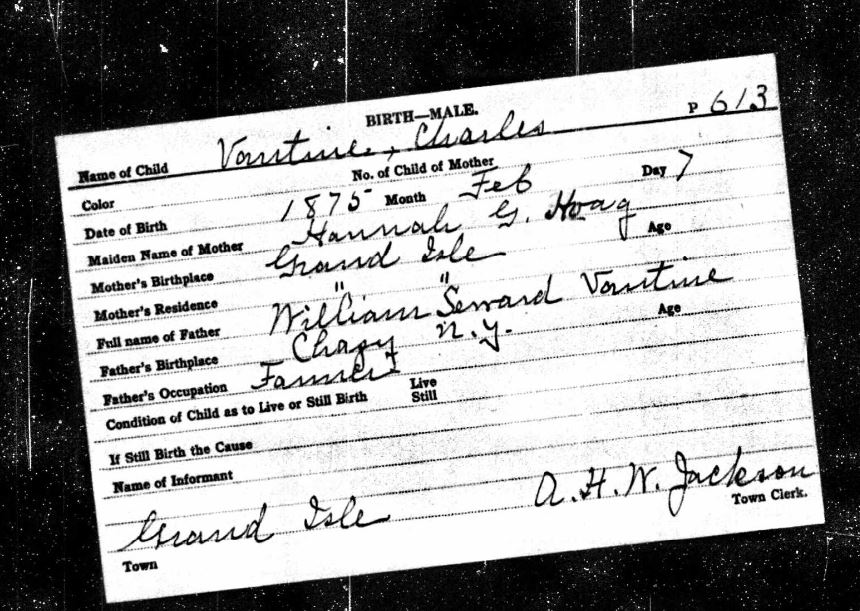 BIRTH—MALE. P 613
Name of Child Vontine, Charles
Color No. of Child of Mother
Date of Birth 1875 Month Feb Day 7
Maiden Name of Mother Hannah G. Hoag
Mother's Birthplace Grand Isle Age
Mother's Residence " "
Full name of Father William Seward Vontine
Father's Birthplace Chazy N.Y. Age
Father's Occupation Farmer
Condition of Child as to Live or Still Birth Live
Still
If Still Birth the Cause
Name of Informant
A. H. W. Jackson
Grand Isle Town Clerk.
Town